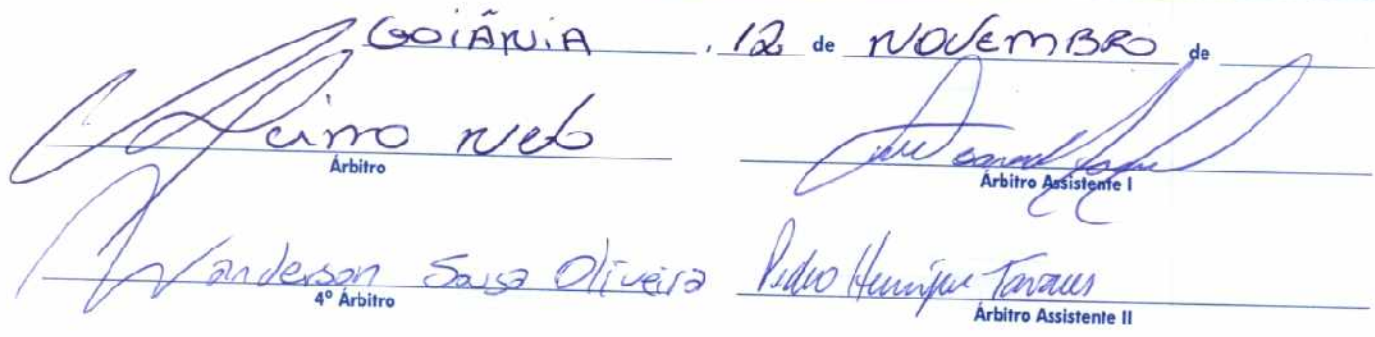 GOIÂNIA, 12 de NOVEMBRO de
Neto
Árbitro
Árbitro Assistente I
Wanderson Sousa Oliveira Pedro Henrique Tavares
4º Árbitro
Árbitro Assistente II